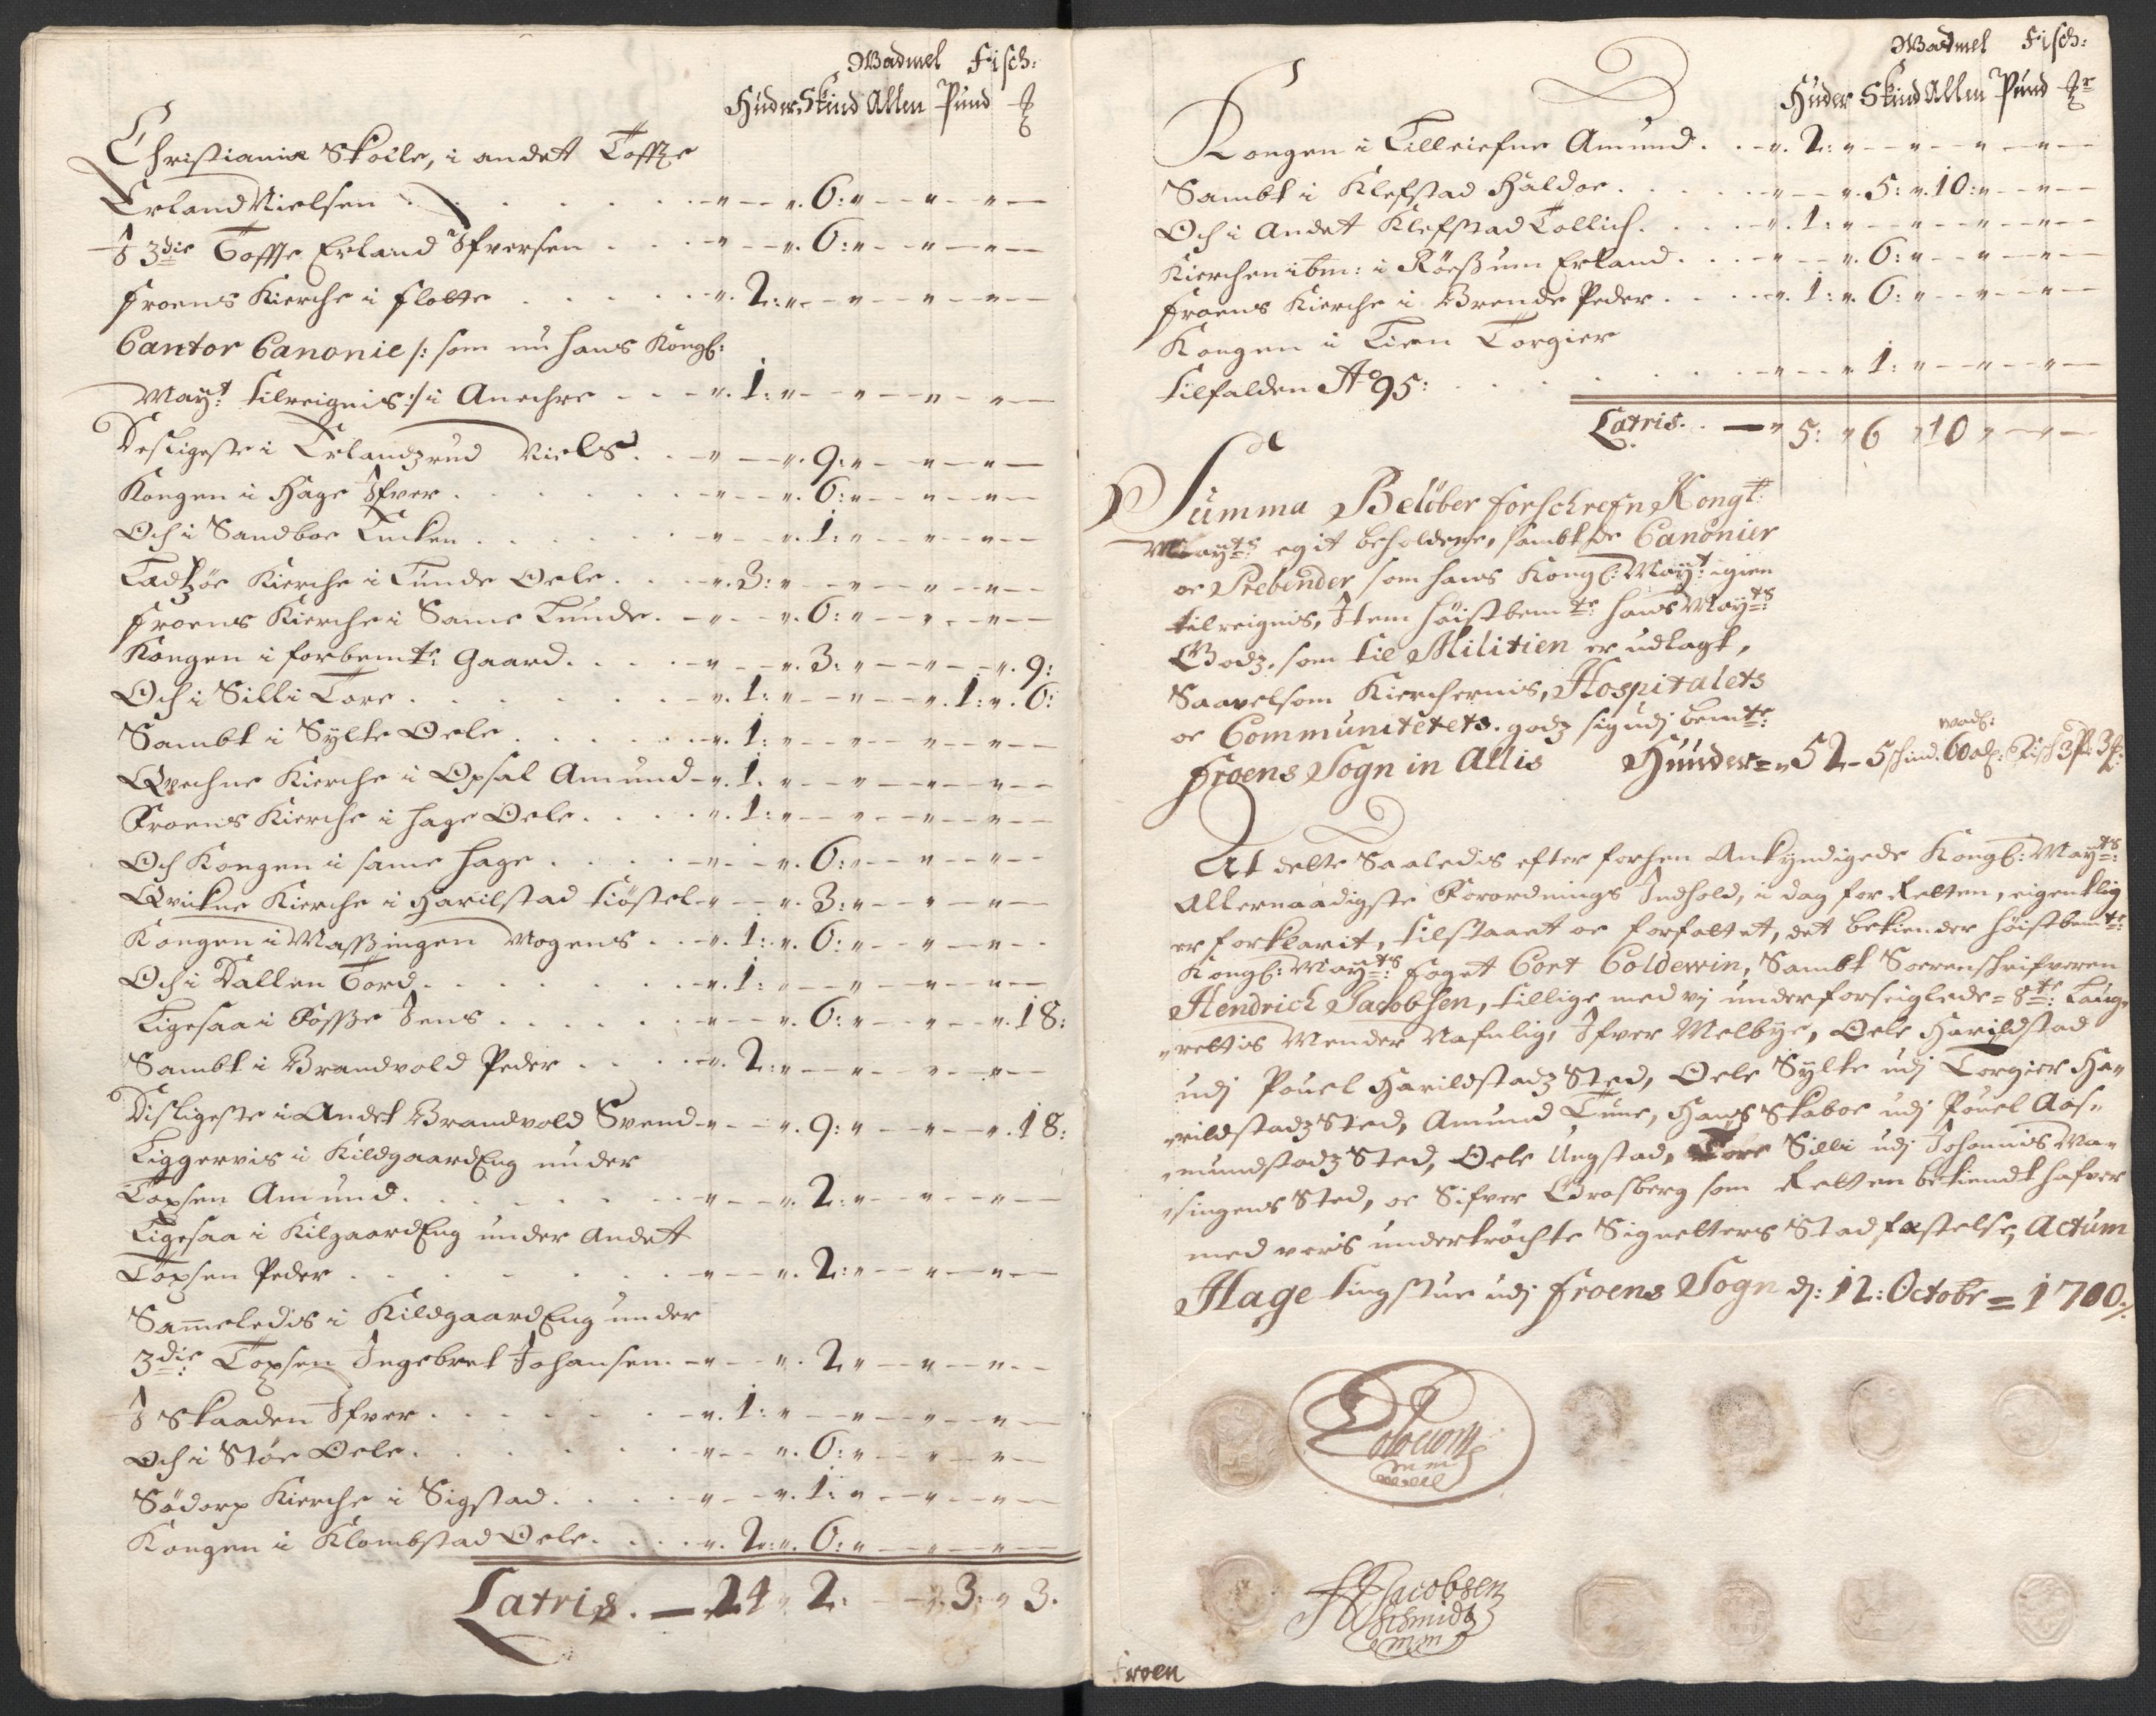 Wadmel Fisch:
Huder Skind Allen Pund
Christiania Skolle, i andet Toffte
Erland Nielsen . . . . . " — " . 6: " — " — " —
I 3die Toffte Erland Ifversen . . . " — " . 6: " — " — " —
Froens Kierche i Flotte . . . . . " . 2: " — " — " — " —
Cantor Canonie /: som nu hans Kongl:
Mayt: tilreignis :/ i Anechre . . . " . 1: " — " — " — " —
Desligeste i Erlandzrud Niels . . " — " . 9: " — " — " —
Kongen i Hage Ifver . . . . . " — " . 6: " — " — " —
Och i Sandboe . . . . . " — " . 1: " — " — " —
Kierche i Lunde Oele . . . " . 3: " — " — " — " —
Froens Kierche i Same Lunde . " — " . 6: " — " — " —
Kongen i forbemte: Gaard . . . . " — " . 3: " — " — " . 9:
Och i Silli Tore . . . . . " . 1: " — " — " . 1: " . 6:
Sambt i Sylte Oele . . . . . " . 1: " — " — " — " —
Qvechne Kierche i Opsal Amund — " . 1. " — " — " — " —
Froens Kierche i Hage Oele . . . . " . 1: " — " — " — " —
Och Kongen i same Hage . . . . " — " . 6: " — " — " —
Qvickne Kierche i Harilstad Kiöstel " — " . 3: " — " — " —
Kongen i Massingen Mogens . . " . 1: " . 6: " — " — " —
Och i Dallen Tord . . . . . " . 1: " — " — " — " —
Ligesaa i Fosse Jens . . . . . " — " . 6: " — " — " . 18:
Sambt i Brandvold Peder . . . . " . 2: " — " — " — " —
Disligeste i Andet Brandvold Svend " — " . 9: " — " — " . 18:
Liggervis i Kildgaard Eng under
Topsen Amund . . . . . " — " . 2: " — " — " —
Ligesaa i Kilgaard Eng under Andet
Topsen Peder . . . . . " — " . 2: " — " — " —
Sammeledis i Kildgaard Eng under
3die: Topsen Ingebret Johansen . " — " . 2 " — " — " —
I Skaaden Ifver . . . . . " . 1: " — " — " — " —
Och i Støe Oele . . . . . " — " . 6: " — " — " —
Södorp Kierche i Sigstad . . . . " — " . 1: " — " — " —
Kongen i Klombstad Oele . . . . " . 2: " . 6: " — " — " —
Latris . — 24 " 2: — " 3: " 3.
Wadmel Fisch:
Huder Skind Allen Pund
Kongen i Amund . . " . 2: " — " — " — " —
Sambt i Klefstad Haldor . . . . " — " . 5: " . 10: " — " —
Och i Andet Klefstad Tollich . . . " . 1: " — " — " — " —
Kierchen ibm: i Röessum Erland . . . " — " . 6: " — " — " —
Froens Kierche i Brende Peder . . . " . 1: " . 6: " — " — " —
Kongen i Tien Torgier
tilfalden Ao 95: . . . . . " — " . 1: " — " — " —
Latris . . — " 5: " 6 " 10 " — " —
Summa Belöber forschrefn Kongl:
Mayts: egit beholdene, sambt de Canonier
oc Prebender som hans Kongl: Mayt: igien
tilreignis, Item höistbemte: hans Mayts:
Godz, som til Militien er udlagt,
Saavelsom Kierchernis, Hospitalets
oc Communitetets godz sig udj bemte:
wadl:
Froens Sogn in Allis Huuder = " 52 — 5 schind. 60 al: Fisch 3 P 3
At dette Saaledis efter forhen Ankyndigede Kongl: Mayts:
Allernaadigste Forordnings Indhold, i dag for Retten, eigentlig
er forklarit, tilstaaet oc forfattet, det bekiender höistbemte:
Kongl: Mayts: Foget Cort Coldewin, Sambt Sorenschrifveren
Hendrich Jacobsen, tillige med vj underforseiglede = 8te: Laug-
rettis Mender Nafnlig, Ifver Melbye, Oele Harildstad
udj Pouel Harildstadz Sted, Oele Sylte udj Torgier Ha-
rildstadz Sted, Amund Tune, Hans Skaboe udj Pouel Aas-
mundstadz Sted, Oele Ungstad, Tore Silli udj Johannis Ma-
singens Sted, oc Sifver Grosberg som Retten betiendt hafver
med voris undertröchte Signetters Stadfæstelse, Actum
Hage tingstue udj Froens Sogn d: 12: Octobr = 1700 ./.
Coldewin
mm
HJacobsen
Schmidt
mm
Froen